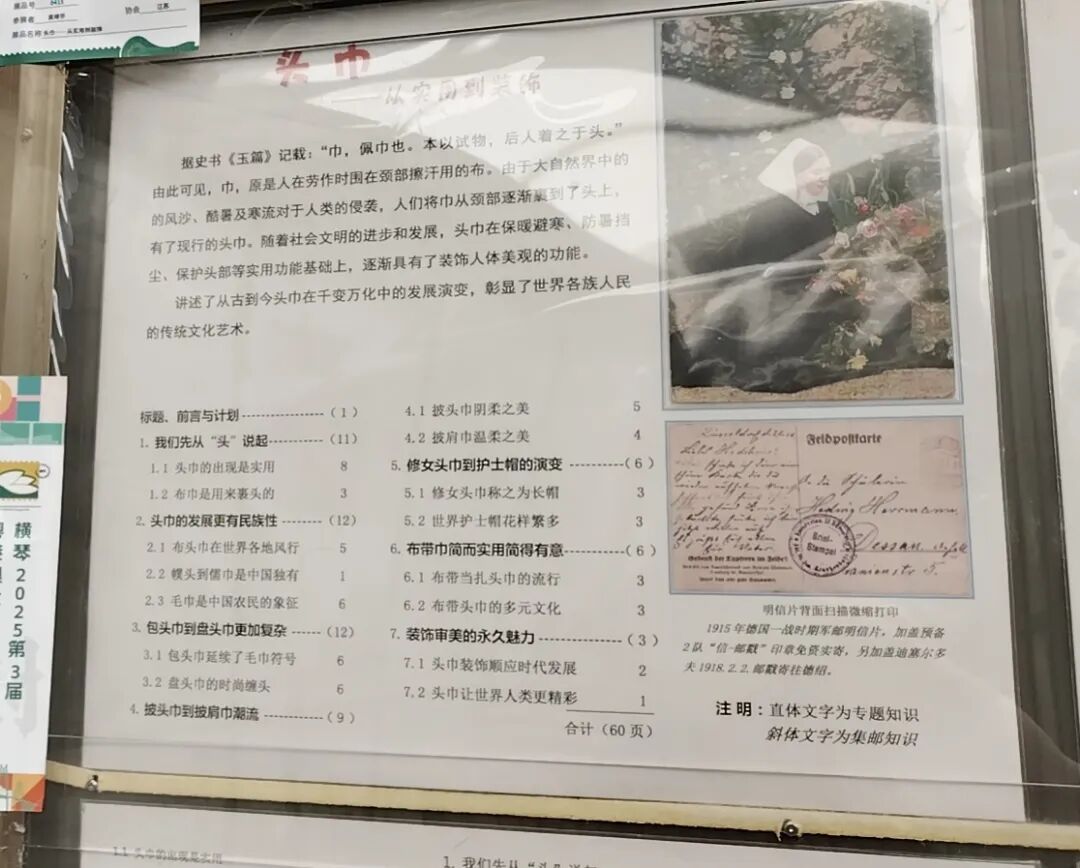 展品号 0413
参展者
协会 江苏
展品名称 头巾——从实用到装饰
头巾
——从实用到装饰
据史书《玉篇》记载：“巾，佩巾也。本以试物，后人着之于头。”
由此可见，巾，原是人在劳作时围在颈部擦汗用的布。由于大自然界中的
的风沙、酷暑及寒流对于人类的侵袭，人们将巾从颈部逐渐裹到了头上，
有了现行的头巾。随着社会文明的进步和发展，头巾在保暖避寒、防暑挡
尘、保护头部等实用功能基础上，逐渐具有了装饰人体美观的功能。
讲述了从古到今头巾在千变万化中的发展演变，彰显了世界各族人民
的传统文化艺术。
标题、前言与计划 ----------------（1）
1. 我们先从“头”说起-----------（11）
1.1 头巾的出现是实用 8
1.2 布巾是用来裹头的 3
2. 头巾的发展更有民族性 --------（12）
2.1 布头巾在世界各地风行 5
2.2 幞头到儒巾是中国独有 1
2.3 毛巾是中国农民的象征 6
3. 包头巾到盘头巾更加复杂 ------（12）
3.1 包头巾延续了毛巾符号 6
3.2 盘头巾的时尚缠头 6
4. 披头巾到披肩巾潮流 ------------（9）
4.1 披头巾阴柔之美 5
4.2 披肩巾温柔之美 4
5. 修女头巾到护士帽的演变 ----------（6）
5.1 修女头巾称之为长帽 3
5.2 世界护士帽花样繁多 3
6. 布带巾简而实用简得有意-----------（6）
6.1 布带当扎头巾的流行 3
6.2 布带头巾的多元文化 3
7. 装饰审美的永久魅力 --------------（3）
7.1 头巾装饰顺应时代发展 2
7.2 头巾让世界人类更精彩 1
合计（60页）
Feldpostkarte
Hedwig Herrmann
Dessau
Brief-
Stempel
明信片背面扫描微缩打印
1915年德国一战时期军邮明信片，加盖预备
2队“信-邮戳”印章免费实寄，另加盖迪塞尔多
夫1918.2.2.邮戳寄往德绍。
注明：直体文字为专题知识
斜体文字为集邮知识
横琴2025第3届
1.1 头巾的出现是实用
1. 我们先从“头”说起